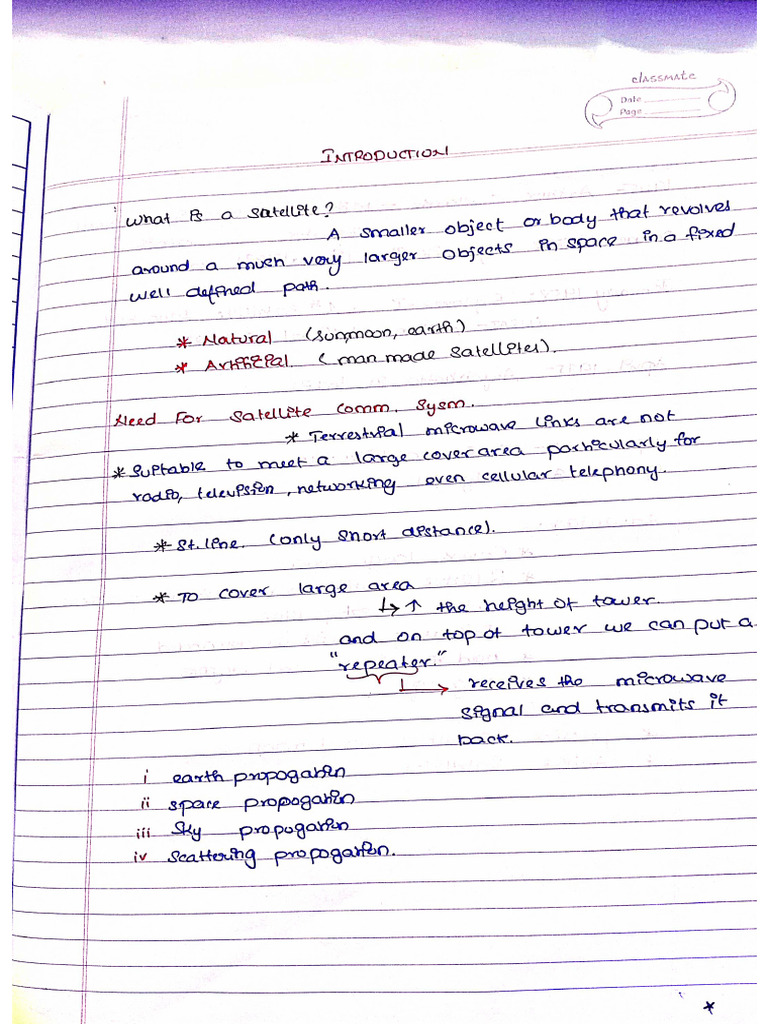 classmate
Date
Page
INTRODUCTION
What is a satellite?
A smaller object or body that revolves
around a much very larger objects in space in a fixed
well defined path.
* Natural (sun,moon, earth)
* Artificial. (man made satellites).
Need For Satellite Comm. Sysm.
* Terrestrial microwave links are not
* suitable to meet a large cover area particularly for
radio, television, networking even cellular telephony.
* St.line. (only short distance).
* To cover large area
↳ ↑ the height of tower.
and on top of tower we can put a
"repeater."
→ receives the microwave
signal and transmits it
back.
i earth propogation
ii space propogation
iii Sky propogation
iv scattering propogation.
*